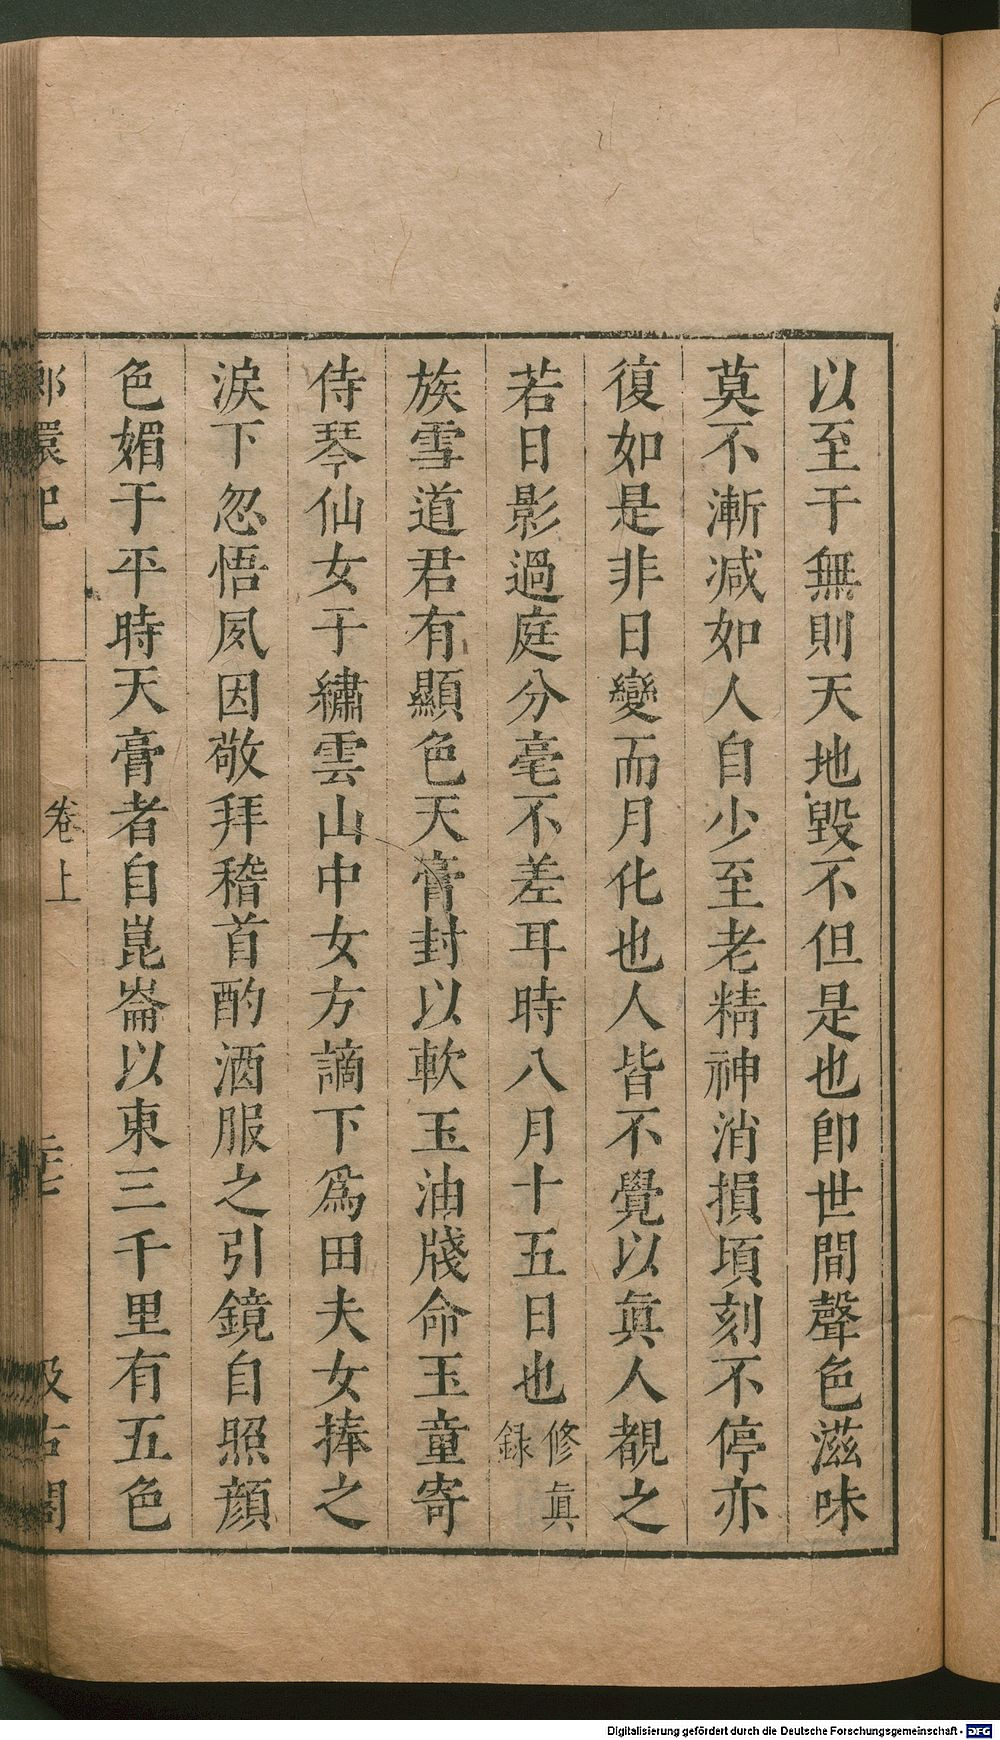 以至于無則天地毀不但是也卽世間聲色滋味
莫不漸减如人自少至老精神消損頃刻不停亦
復如是非日變而月化也人皆不覺以眞人覩之
若日影過庭分毫不差耳時八月十五日也修眞
錄
族雪道君有顯色天膏封以軟玉油牋命玉童寄
侍琴仙女于繡雲山中女方謫下爲田夫女捧之
淚下忽悟夙因敬拜稽首酌酒服之引鏡自照顔
色媚于平時天膏者自崑崙以東三千里有五色
環記
卷上
汲古閣
Digitalisierung gefördert durch die Deutsche Forschungsgemeinschaft - DFG